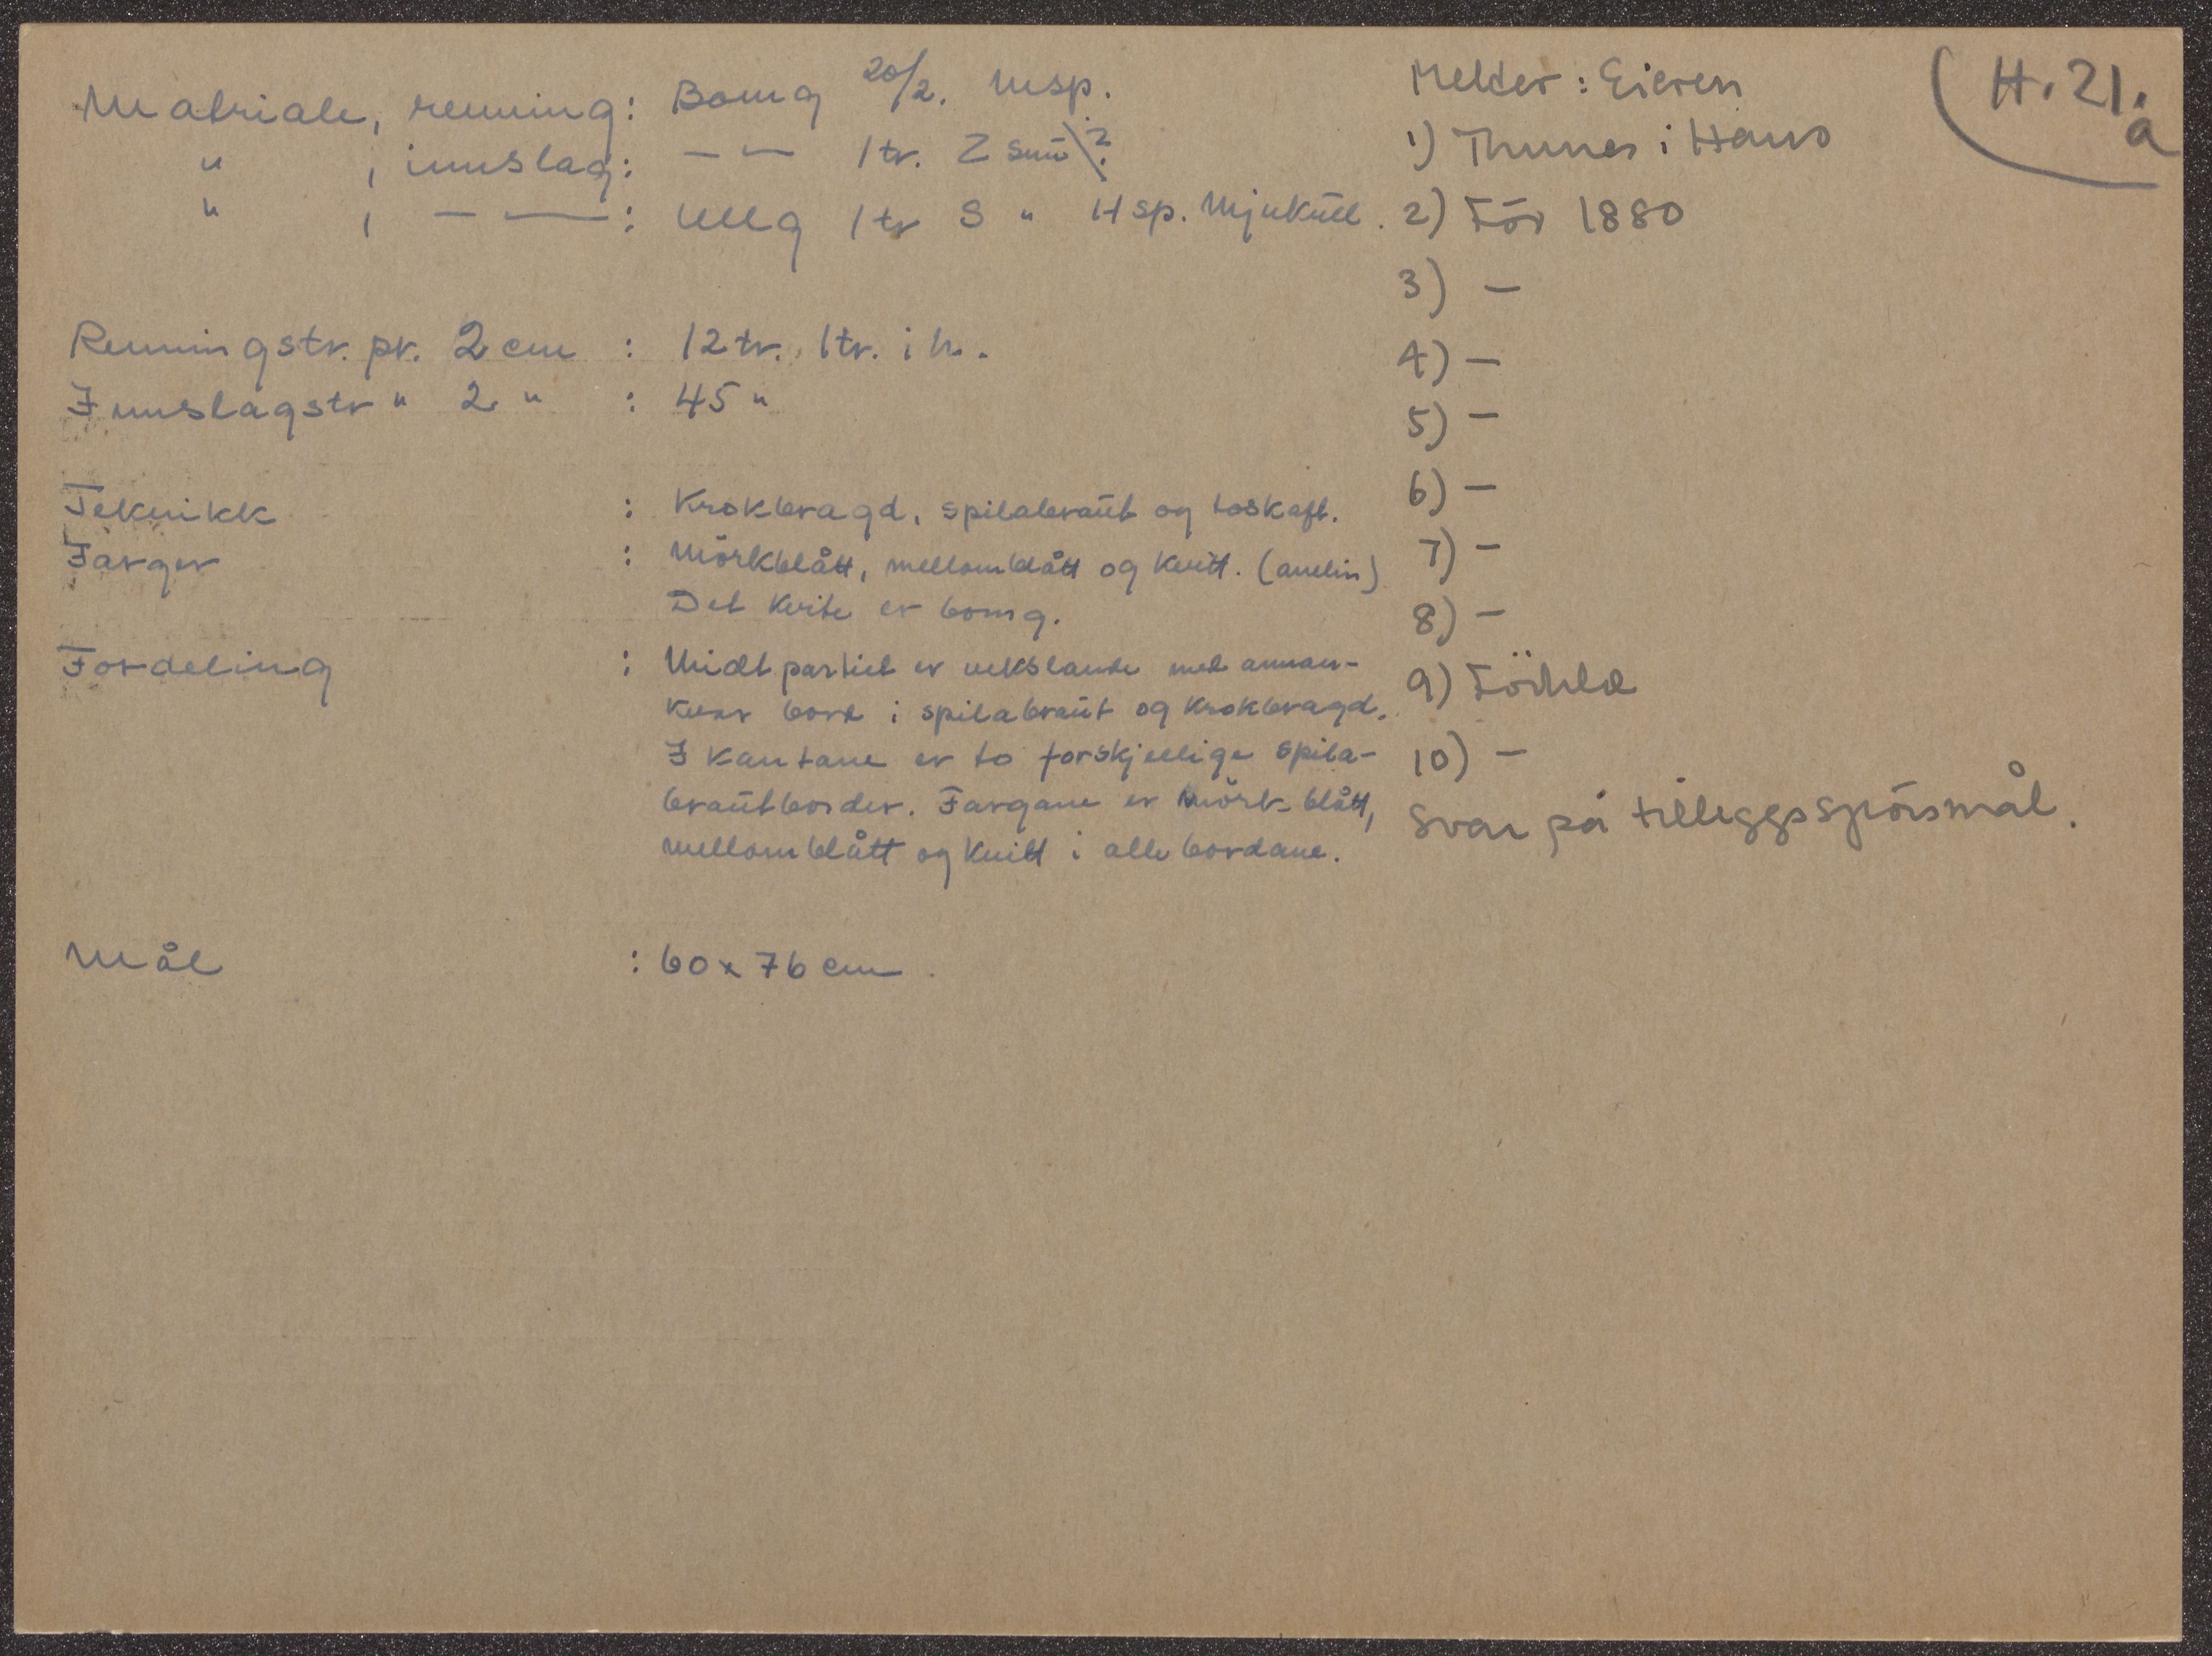 H. 21. a
Matriale, renning: Bomg 20/2. Msp.
" , innslag: — — 1 tr. Z snū ?
" , — — : Ullg 1 tr S " H sp. Mjukūll.
Renningstr. pr. 2 cm : 12 tr. 1 tr. i h.
Innslagstr " 2 " : 45 "
Teknikk : Krokbragd, spilabraūt og toskaft.
Farger : Mörkblått, mellomblått og kvitt. (anelin)
Det kvite er bomg.
Fordeling : Midtpartiet er vekslande med annan-
kvar bord i spilabraūt og krokbragd.
I kantane er to forskjellige spila-
braūtborder. Fargane er mörk-blått,
mellomblått og kvitt i alle bordane.
Mål : 60 x 76 cm.
Melder: Eieren
1) Thunes i Haus
2) För 1880
3) —
4) —
5) —
6) —
7) —
8) —
9)
10) —
Svar på tilleggsspörsmål.